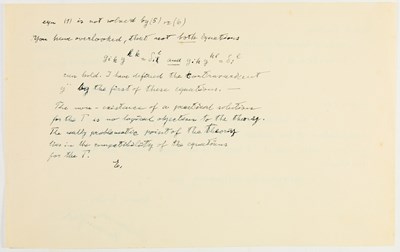 eqn (1) is not solved by (5) or (6)
You have overlooked, that not both equations
g_{ik} g^{lk} = δ_i^l and g_{ik} g^{kl} = δ_i^l
can hold. I have defined the contravariant
g by the first of these equations. —
The non-existence of a practical solution
for the Γ is no logical objection to the theory.
The really problematic point of the theory
lies in the compatibility of the equations
for the Γ.
E.